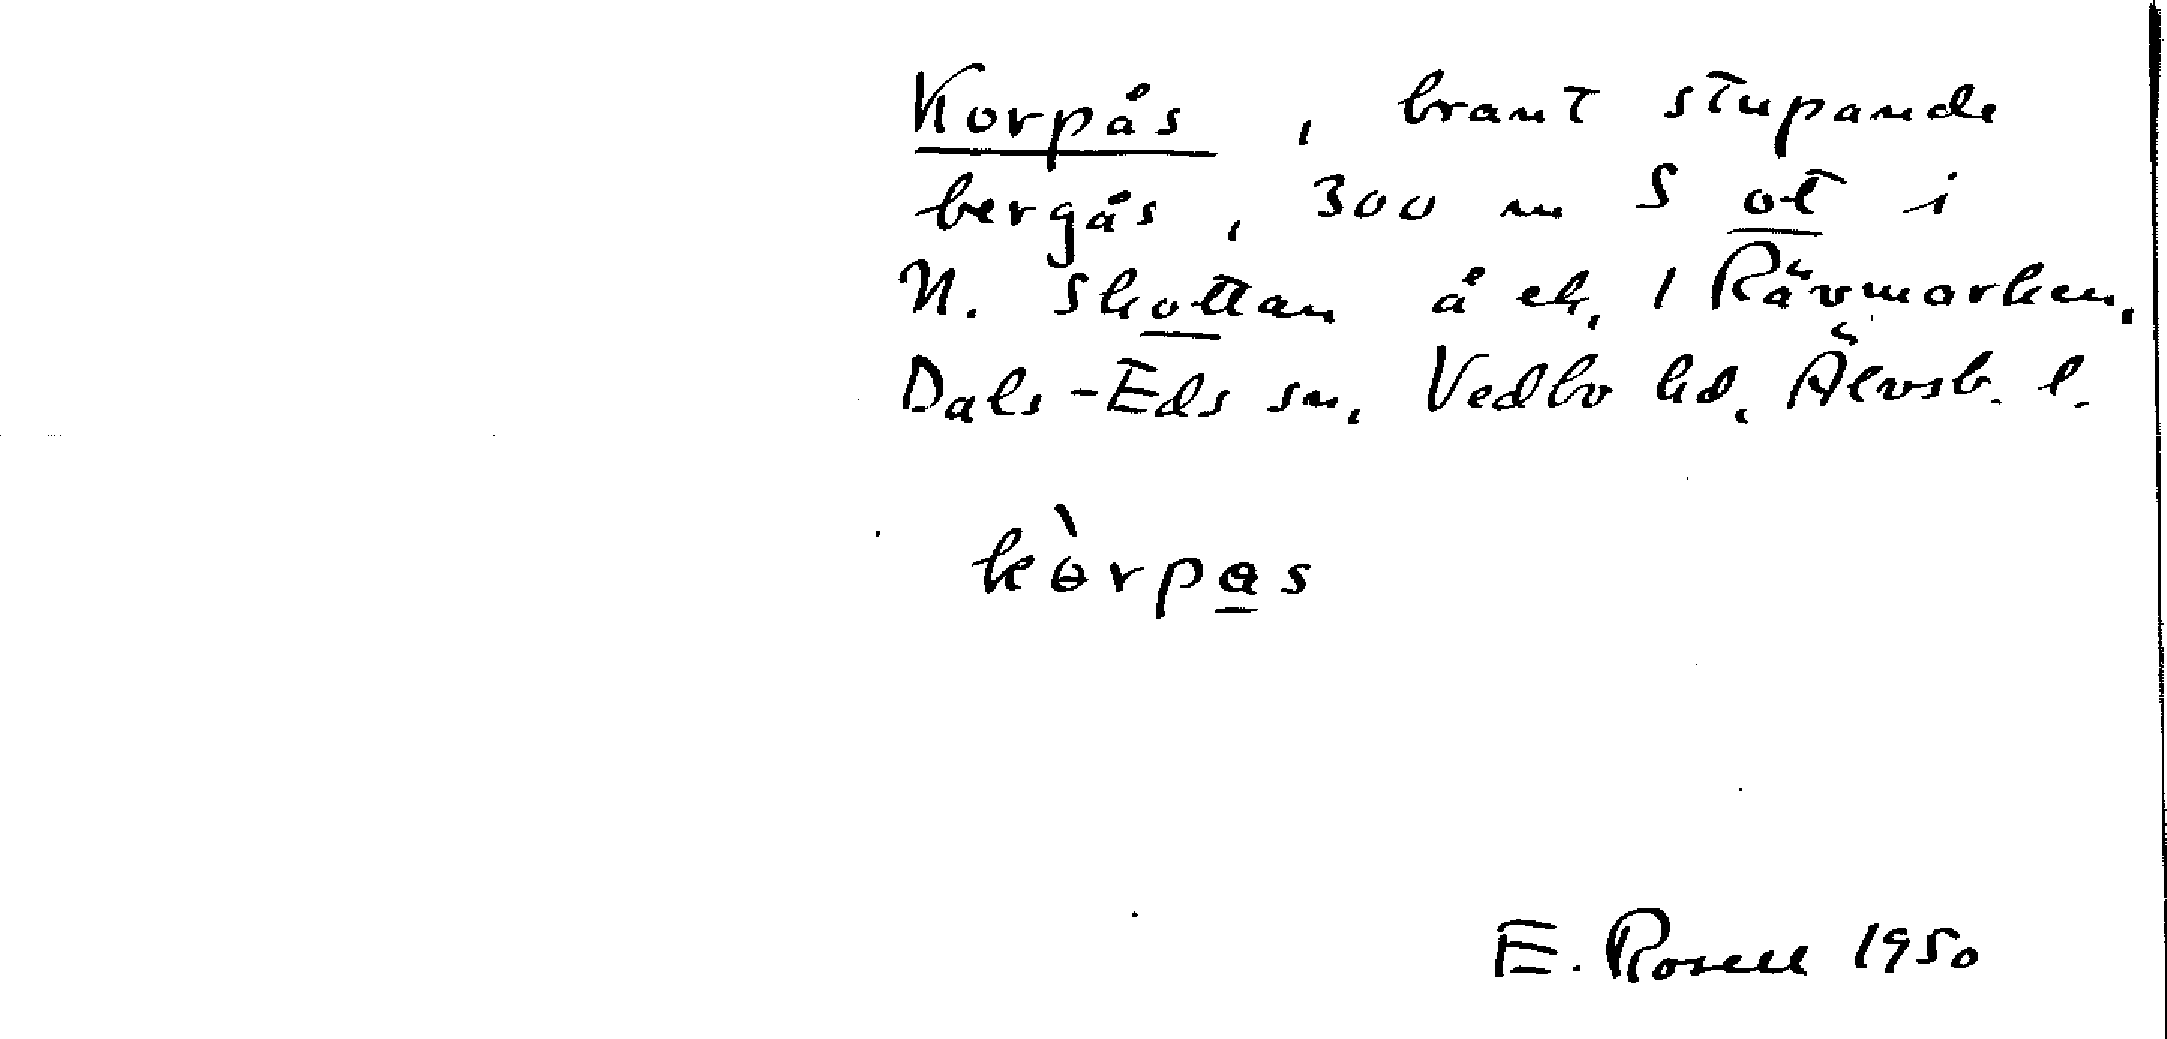 Korpås, brant stupande
bergås, 300 m S ot i
N. Skottan å ek. 1 Rävmarken.
Dals-Eds sn. Vedbo hd. Älvsb. l.
kɵ̀rpas
E. Rosell 1950